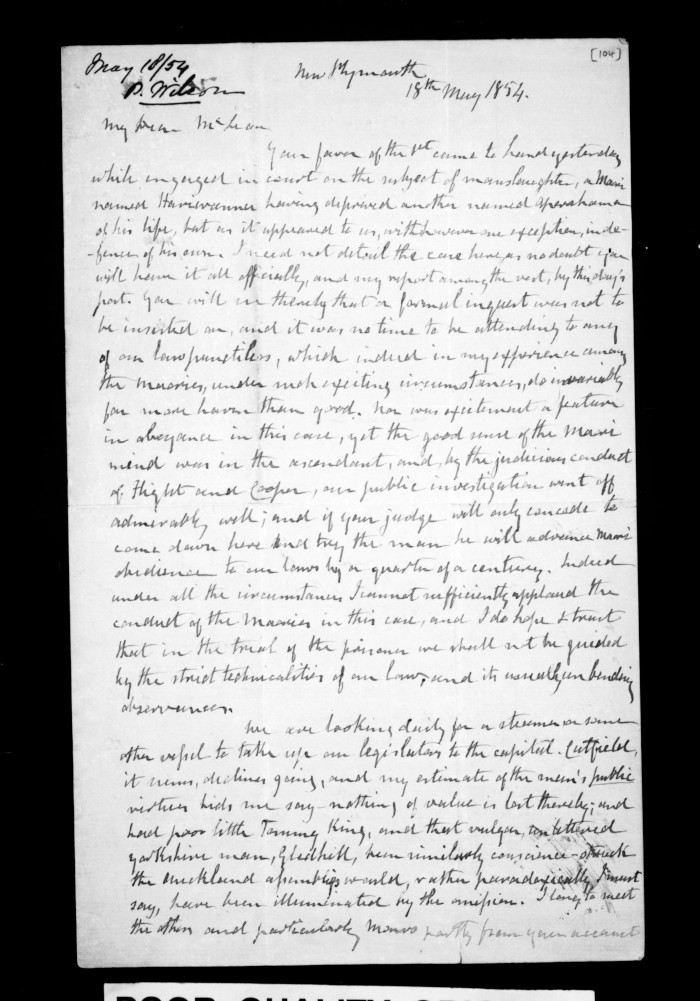 [104]
May 18/54
P. Wilson
New Plymouth
18th May 1854.
My Dear McLean
Your favor of the 1st came to hand yesterday
while engaged in court on the subject of manslaughter, a Maori
named having deprived another named
of his life, but as it appeared to us, with however one exception, in de-
-fence of his own. I need not detail the case here, as no doubt you
will have it all officially, and my report among the rest, by this day's
post. You will see thereby that a formal inquest was not to
be insisted on, and it was no time to be attending to any
of our law punctilios, which indeed in my experience among
the Maories, under such exciting circumstances, do invariably
far more harm than good. Nor was excitement a feature
in abeyance in this case, yet the good sense of the Maori
mind was in the ascendant, and, by the judicious conduct
of Flight and Cooper, our public investigation went off
admirably well; and if your judge will only concede to
come down here and try the man he will advance Maori
obedience to our laws by a quarter of a century. Indeed
under all the circumstances I cannot sufficiently applaud the
conduct of the Maories in this case, and I do hope & trust
that in the trial of the prisoner we shall not be guided
by the strict technicalities of our law, and its usually unbending
observances.
We are looking daily for a steamer or some
other vessel to take up our legislators to the capital. Cutfield,
it seems, declines going, and my estimate of the man's public
virtues bids me say - nothing of value is lost thereby; and
had poor little Tommy King, and that vulgar, unlettered
Yorkshire man, Gledhill, been similarly conscience-struck
the Auckland assemblies would, rather paradoxically I must
say, have been illuminated by the omission. I long to meet
the others and particularly partly from your account
POOR QUALITY